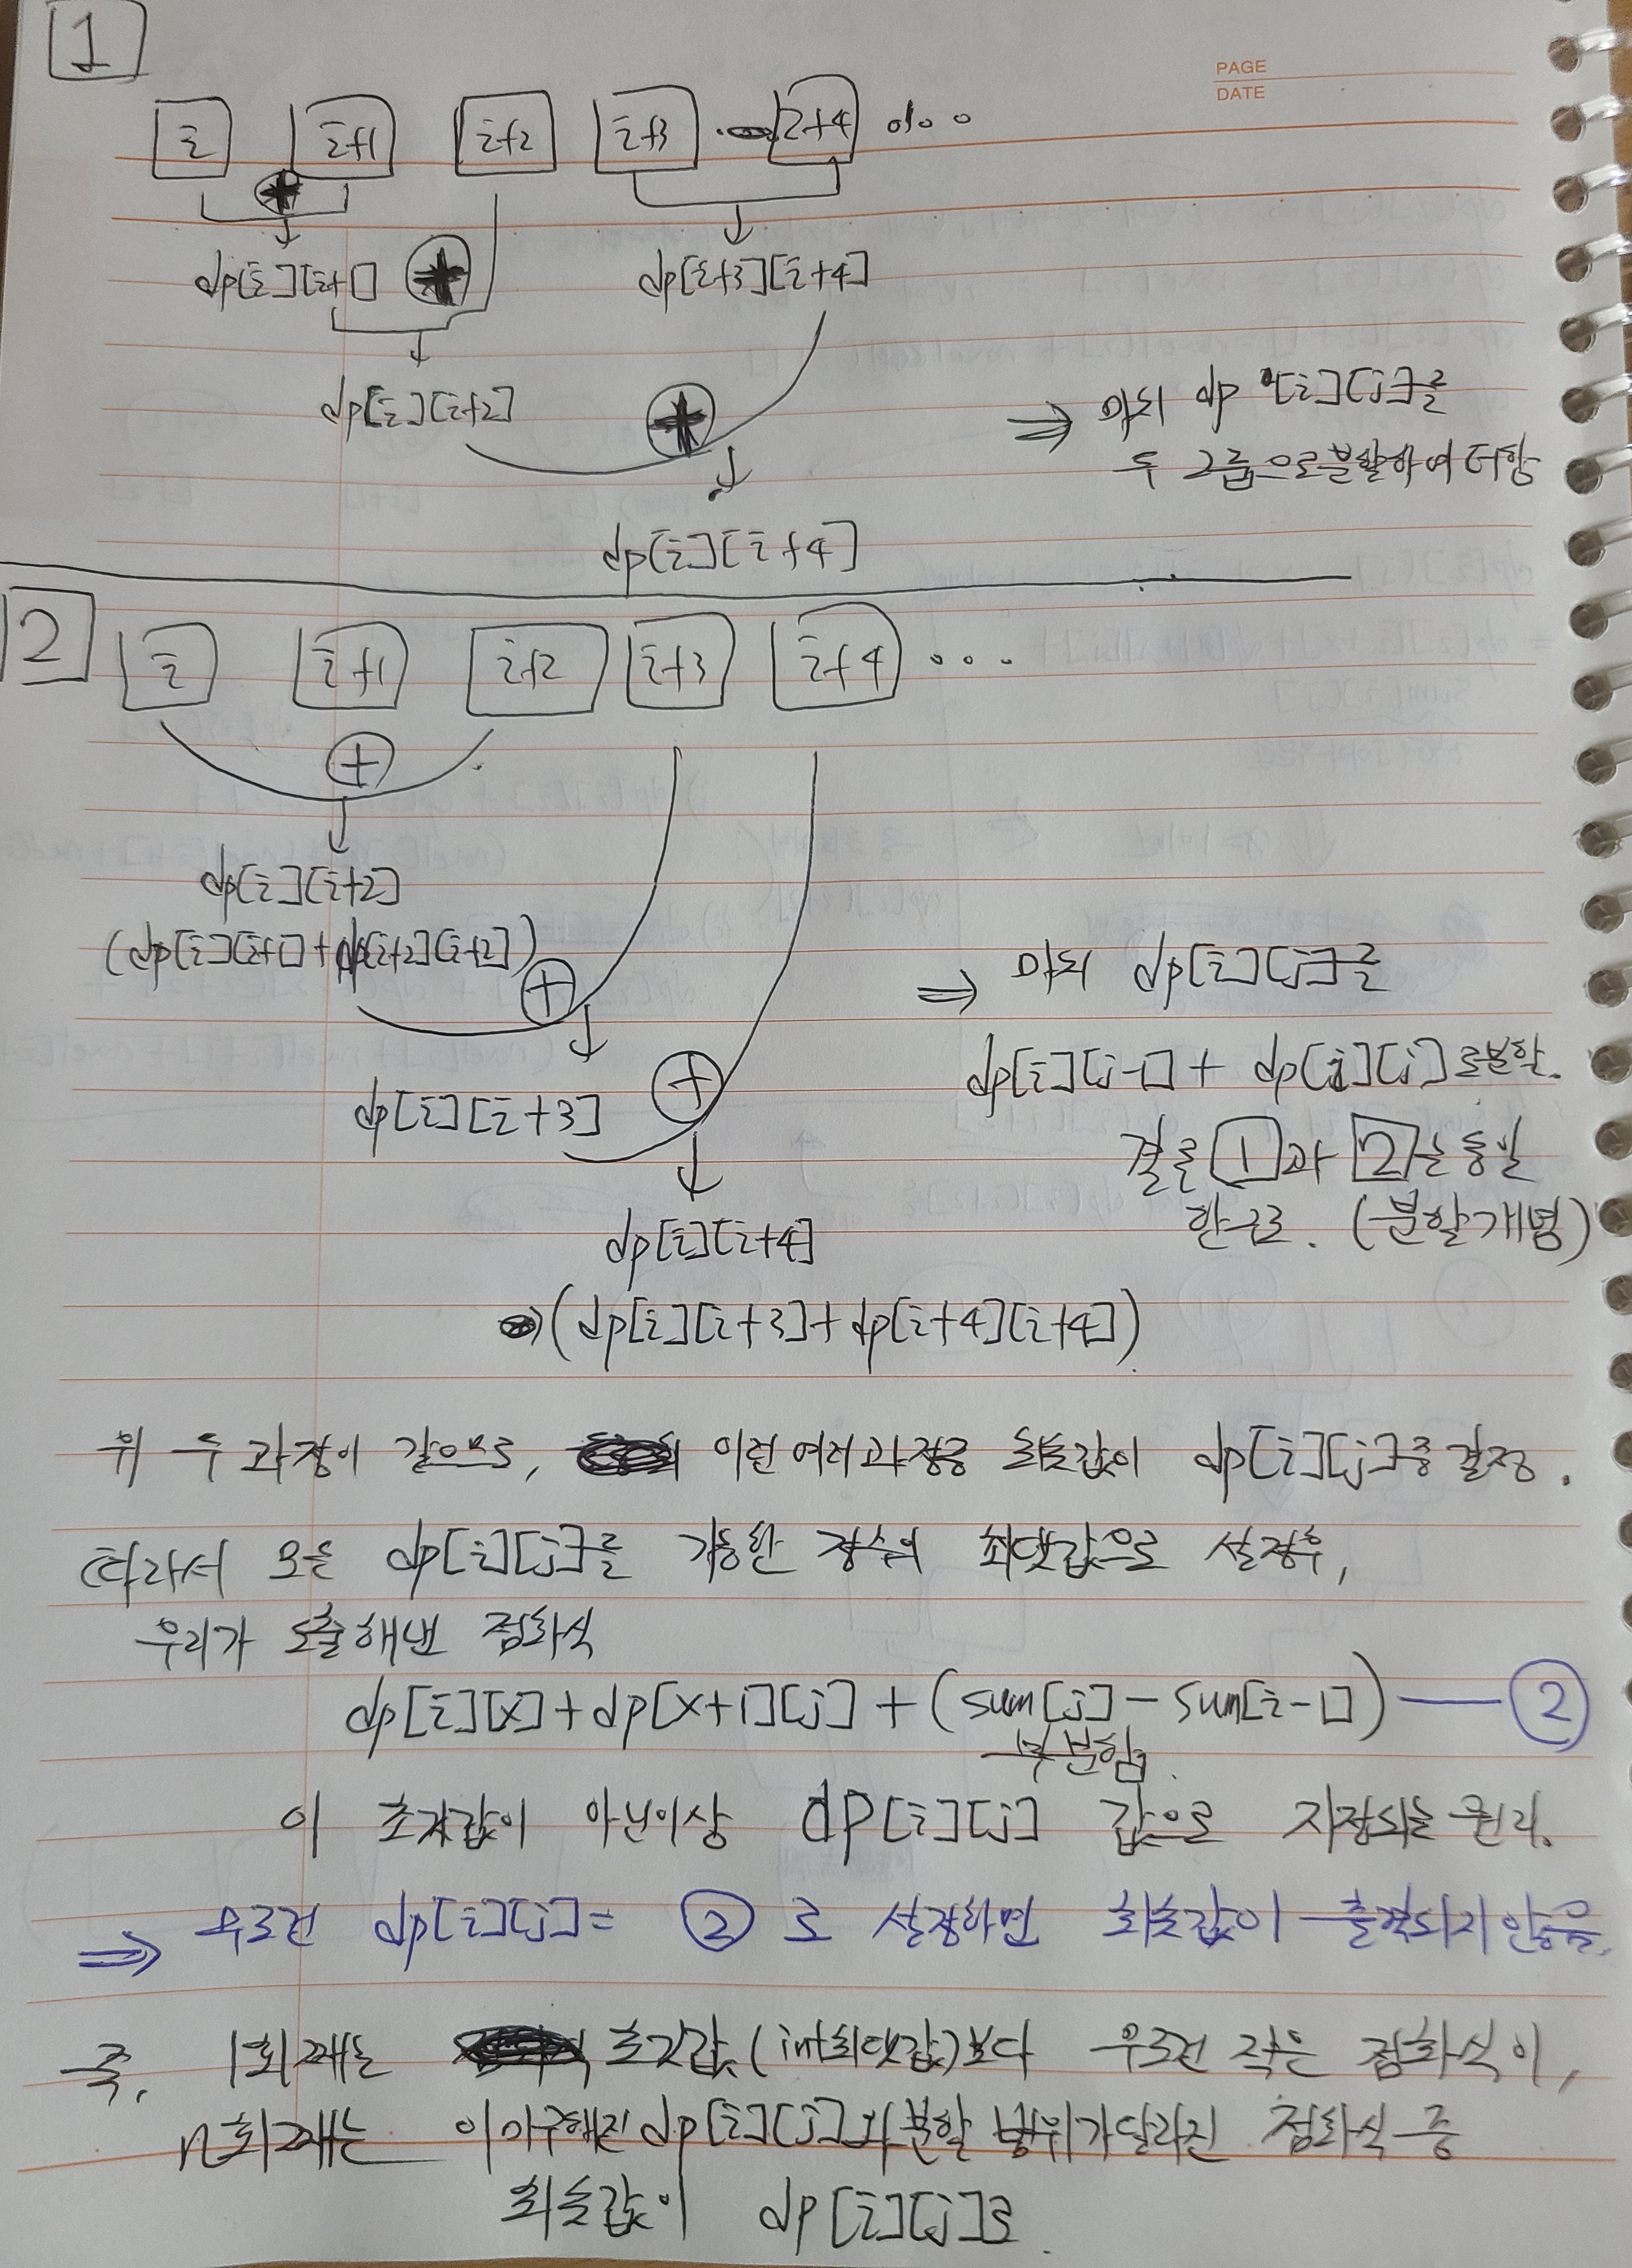 1
PAGE
DATE
i i+1 i+2 i+3 i+4
dp[i][i+1] dp[i+3][i+4]
dp[i][i+2]
⇒ 마치 dp [i][j]를
두 그룹으로 분할하여 더함
dp[i][i+4]
2
i i+1 i+2 i+3 i+4 ...
+
dp[i][i+2]
(dp[i][i+1]+dp[i+2][i+2])
+
⇒ 마치 dp[i][j]를
dp[i][j-1] + dp[j][j]로 분할.
dp[i][i+3] +
결론 1과 2는 동일
한 구조. (분할개념)
dp[i][i+4]
⇒(dp[i][i+3]+dp[i+4][i+4])
위 두 과정이 같으므로, 이런 여러 과정중 최솟값이 dp[i][j]중 결정.
따라서 모든 dp[i][j]를 가능한 정수의 최댓값으로 설정후,
우리가 도출해낸 점화식
dp[i][x]+dp[x+1][j]+(sum[j]-sum[i-1]) — ②
부분합.
이 초깃값이 아닌이상 dp[i][j] 값으로 지정되는 원리.
⇒ 무조건 dp[i][j]= ② 로 설정하면 최솟값이 출력되지 않음.
즉, 1회째는 초깃값(int최댓값)보다 무조건 작은 점화식이,
n회째는 이미구해진 dp[i][j]와 분할 범위가 달라진 점화식 중
최솟값이 dp[i][j]로.